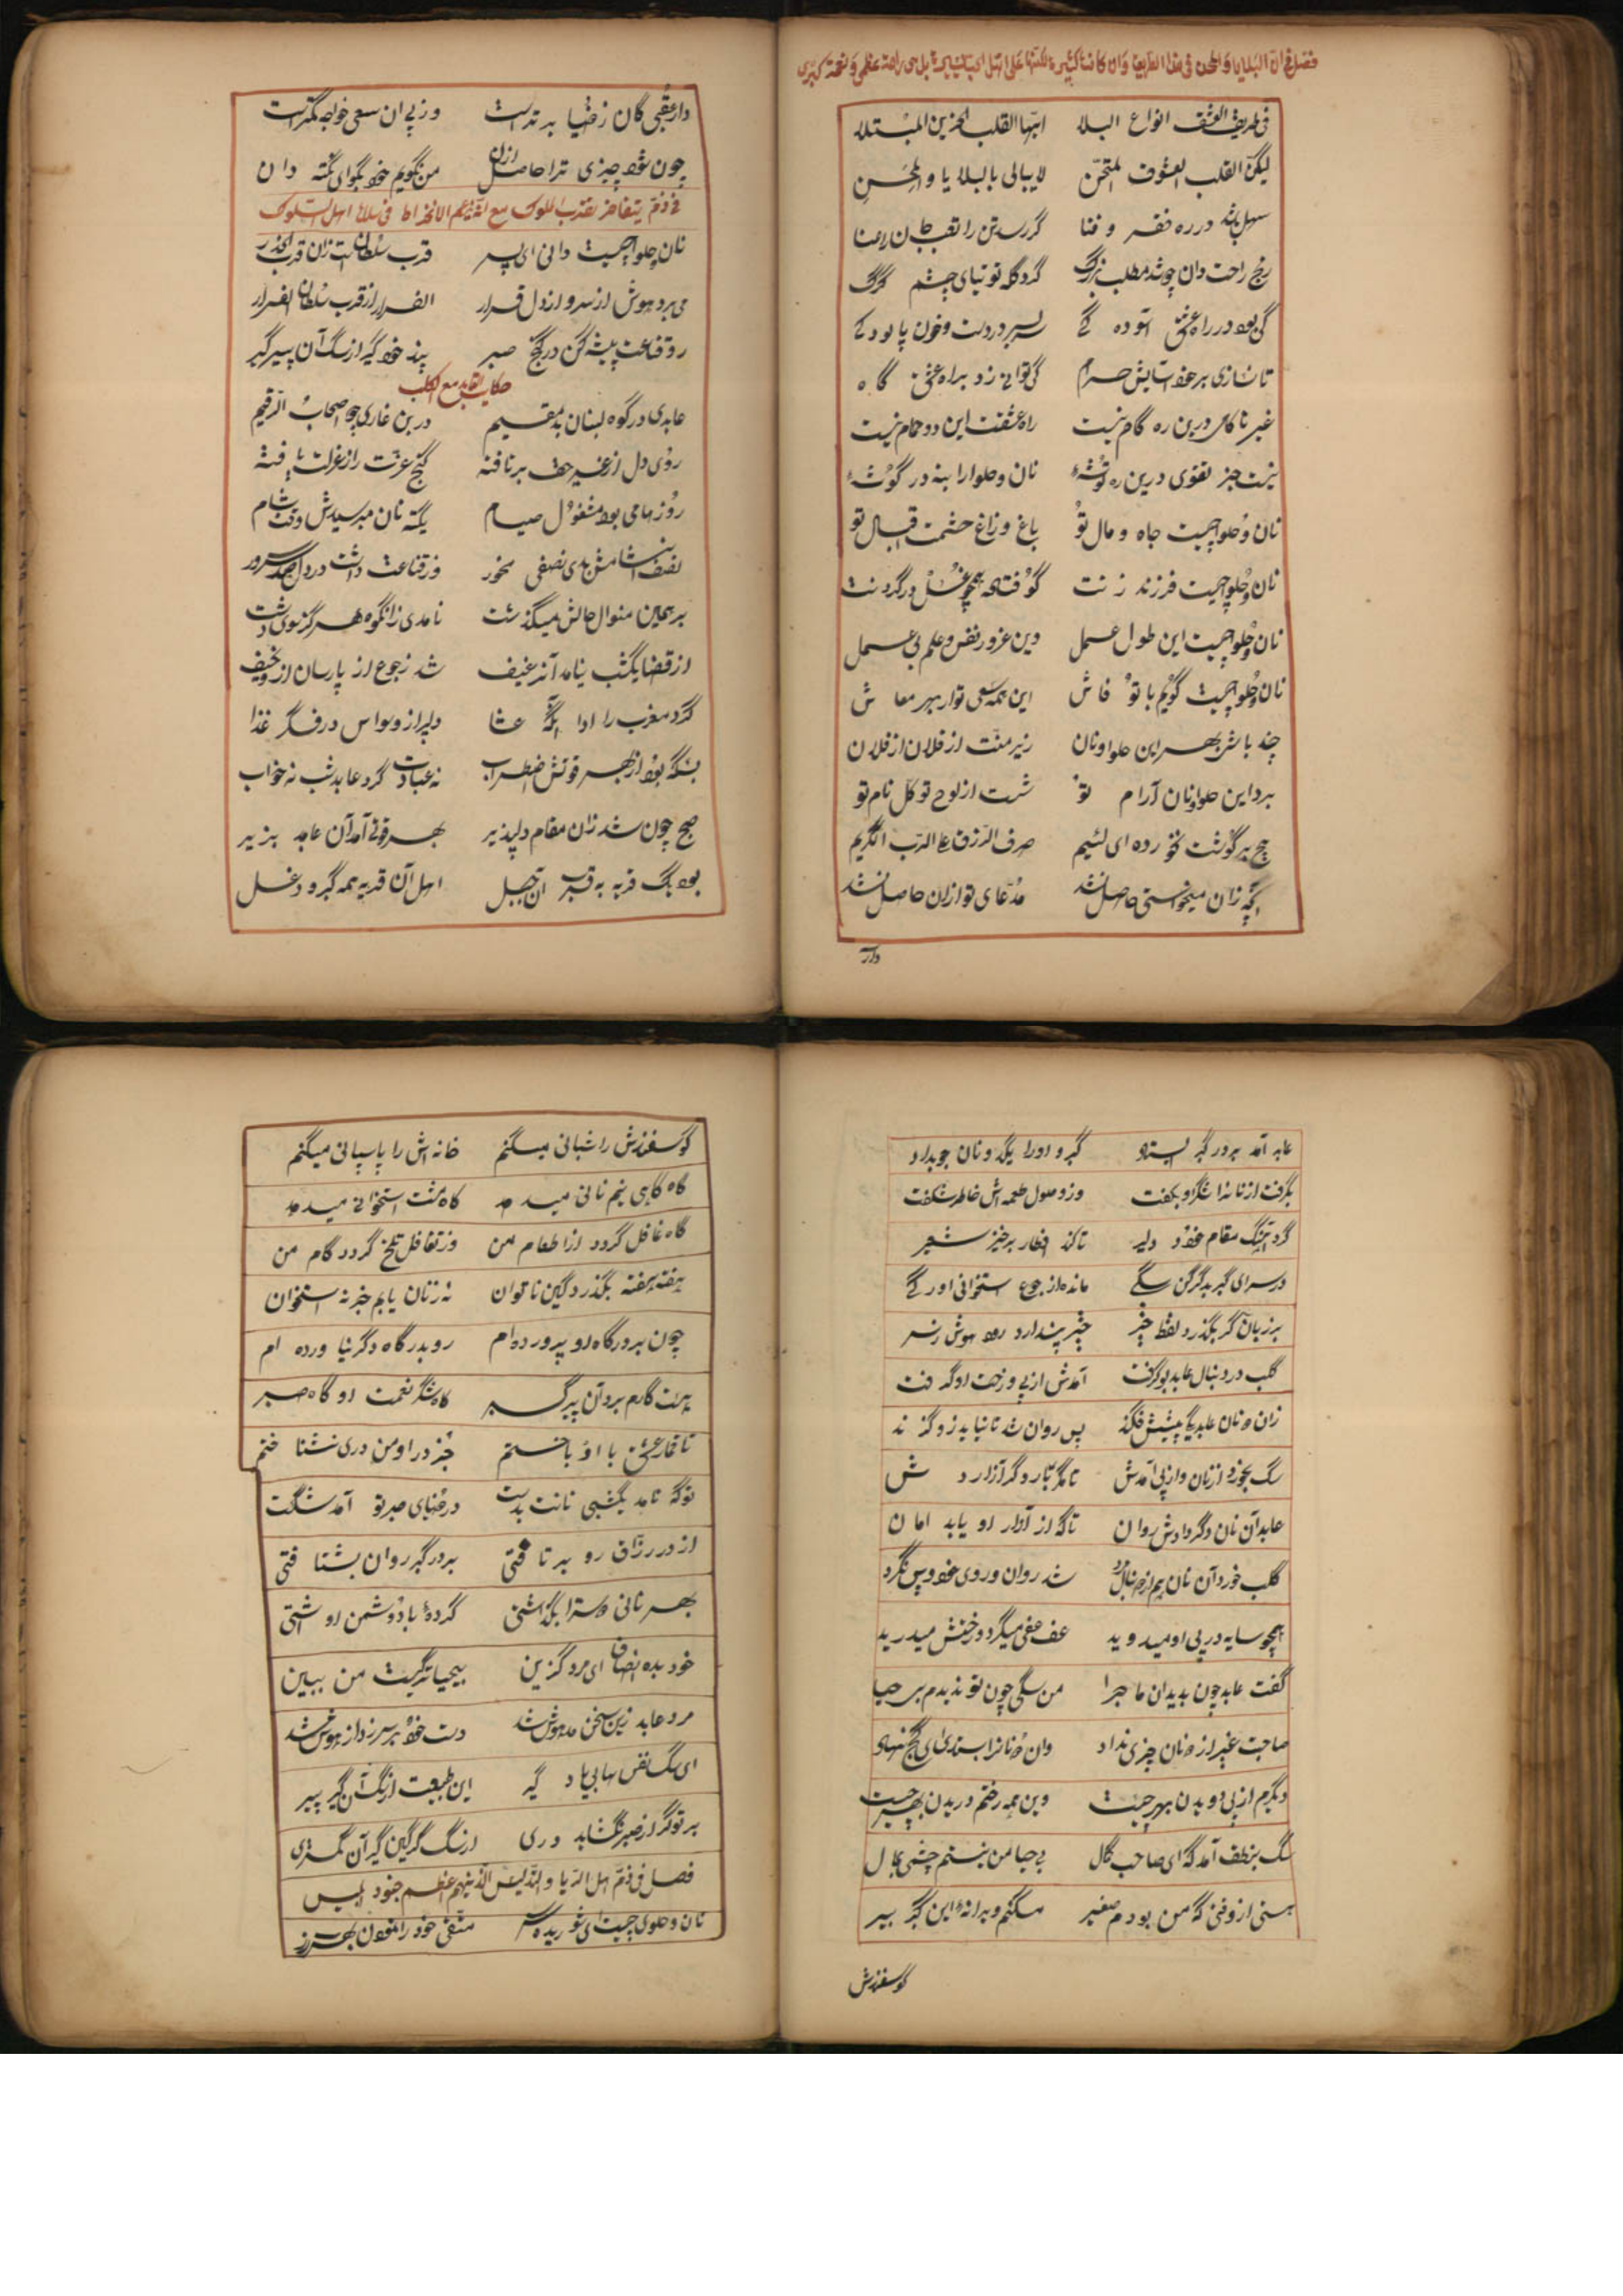 فصل فی ان البلایا و المحن فی هذا الطریق و ان کانت کثیرة لکنها علی اهل المحبة یسیرة بل هی راحة عظمی و نعمة کبری
فی طریق العشق انواع البلا ایها القلب الحزین المبتلا
لیکن القلب العشوف الممتحن لا یبالی بالبلایا و المحن
سهل باشد در ره فقر و فنا گر رسد تن را تعب جان را عنا
رنج راحت دان چو شد مطلب بزرگ گرد گله توتیای چشم گرگ
کی بود در راه عشق آسوده گی بسر بدردست و خون پالوده کی
تا نسازی بر خود آسایش حرام کی توانی زد براه عشق گاه
غیر ناکامی درین ره گام نیست راه عشقست این ره حمام نیست
نیست جز تقوی درین ره توشهٔ نان و حلوا را بنه در گوشهٔ
نان و حلوا چیست جاه و مال تو باغ و زاغ حشمت اقبال تو
نان و حلوا چیست فرزند زنت گو فتاده همچو غل در گردنت
نان و حلوا چیست این طول عمل وین غرور نفس و علم بی عمل
نان و حلوا چیست گویم با تو فاش این همه سعی تو از بهر معاش
چند باشی بهر این حلوا و نان زیر منت از فلان از فلان
برد این حلوا و نان آرام تو شست از لوح توکل نام تو
هیچ بر گوشت نخورده ای لئیم حرف الرزق علی الرب الکریم
آنچه زان میخواستی حاصل نشد مدعای تو ازان حاصل نشد
دار
دار عقبی گان ز دنیا برترست وز پی ان سعی خواجه کمترست
چون شود چیزی ترا حاصل ازان من نگویم خود بگو ای نکته دان
فی ذم من یتفاخر بقرب الملوک مع انه یزعم الانخراط فی سلک اهل السلوک
نان و حلوا چیست دانی ای پسر قرب سلطانست زان قرب الحذر
می برد هوش از سر و از دل قرار الفرار از قرب سلطان الفرار
رو قناعت پیشه کن در کنج صبر پند خود گیر از سگ آن پیر گبر
حکایت العابد مع الکلب
عابدی در کوه لبنان بد مقیم در بن غاری چو اصحاب الرقیم
روی دل از غیر حق برتافته گنج عزت را ز عزلت یافته
روزها می بود مشغول صیام یکته نان میرسیدش وقت شام
نصف انشامش بدی نصفی سحور وز قناعت داشت در دل صد سرور
بر همین منوال حالش میگذشت نامدی زانکوه هرگز سوی دشت
از قضا یکشب نیامد آن رغیف شد ز جوع ان پارسا زار و نحیف
کرد مغرب را ادا انگه عشا دل پر از وسواس در فکر غذا
بسکه بود از بهر قوتش اضطراب نه عبادت کرد عابد شب نه خواب
صبح چون شد زان مقام دلپذیر بهر قوتی آمد آن عابد بزیر
بود یک قریه به قرب آن جبل اهل آن قریه همه گبر و دغل
عابد آمد بر در گبر ایستاد گبر و اورا یکدو نان جو بداد
بگرفت از نانها شکر او بگفت وز وصول طعمه اش خاطر شکفت
کرد آهنگ مقام خود دلیر تا کند افطار بر خیز شعیر
در سرای گبر بد گرگین سگی مانده از جوع استخوانی اور گی
بر زبان گر بگذرد لفظ خبز خبز پندارد رود هوشش ز سر
کلب در دنبال عابد بو گرفت آمدش از پی و رخت او گرفت
زان دو نان عابد یکی پیشش فگند پس روان شد تا نیابد زو گزند
سگ بخورد آن نان و از پی آمدش تا مگر بار دگر آزاردش
عابد آن نان دگر دادش روان تا که از آزار او یابد امان
کلب خورد آن نان هم از دنبال مرد شد روان و روی خود واپس نکرد
همچو سایه در پی او میدوید عف عفی میکرد و رختش میدرید
گفت عابد چون بدید آن ماجرا من سگی چون تو ندیدم بی حیا
صاحبت غیر از دو نان چیزی نداد وان دو نان را بستدی ای کج نهاد
دیگرم از پی دویدن بهر چیست وین همه رختم دریدن بهر چیست
سگ بنطق آمد که ای صاحب کمال بی حیا من نیستم چشمی بمال
هستی از وقتی که من بودم صغیر مسکنم ویرانهٔ این گبر پیر
گوسفندش
گوسفندش را شبانی میکنم خانه اش را پاسبانی میکنم
گاه گاهی نیم نانی میدهد گاه مشت استخوانی میدهد
گاه غافل گردد از اطعام من وز تغافل تلخ گردد کام من
هفته هفته بگذرد کین ناتوان نه ز نان یابم خبر نه استخوان
چون بر درگاه او پرورده ام رو بدرگاه دگر ناورده ام
هست کارم بر در آن پیر گبر گاه شکر نعمت او گاه صبر
تا قمار عشق با او باختم جز در او من دری نشناختم
تو که نامد یکشبی نانت بدست در بنای صبر تو آمد شکست
از در رزاق رو بر تافتی بر در گبر روان بشتافتی
بهر نانی دوست را بگذاشتی کردهٔ با دشمن او آشتی
خود بده انصاف ای مرد گزین بیحیاتر کیست من ببین
مرد عابد زین سخن مدهوش شد دست خود بر سر زد از هوش شد
ای سگ نفس بهایی یاد گیر این طبیعت از سگ آن گبر پیر
بر تو گر از صبر نگشاید دری از سگ گرگین گبر آن کمتری
فصل فی ذم اهل الریا و التدلیس الذینهم اعظم جنود ابلیس
نان و حلوای چیست ای شوریده سر متقی خود را نمودن بهر زر